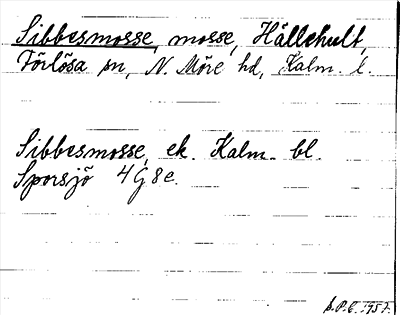 Sibbesmosse, mosse, Hällehult,
Förlösa sn, N. Möre hd, Kalm. l.
Sibbesmosse, ek. Kalm. bl.
Sporsjö 4G8e.
S.P.E. 1957.